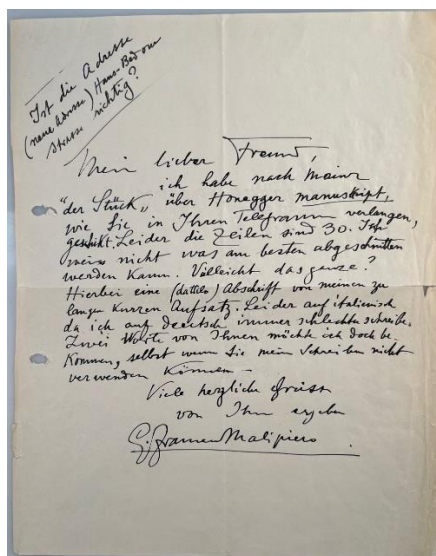 Ist die Adresse
(neue Adresse) Haus-Bad
Strasse richtig?
Mein lieber Freund,
ich habe nach Mainz
"der Stück" über Honegger manuskript,
wie Sie in Ihren Telegramm verlangen,
geschikt. Leider die Zeilen sind 30. Ich
weiss nicht was am besten abgeschnitten
werden kann. Villeicht das ganze?
Hierbei eine (dattilo) Abschrift von meinen zu
langen kurzen Aufsatz. Leider auf italienisch
da ich auf deutsch immer schlechter schreibe.
Zwei Worte von Ihnen möchte ich doch be-
kommen, selbst wenn Sie mein Schreiben nicht
verwenden können -
Viele herzliche Grüsse
von Ihr ergeben
G. Francesco Malipiero